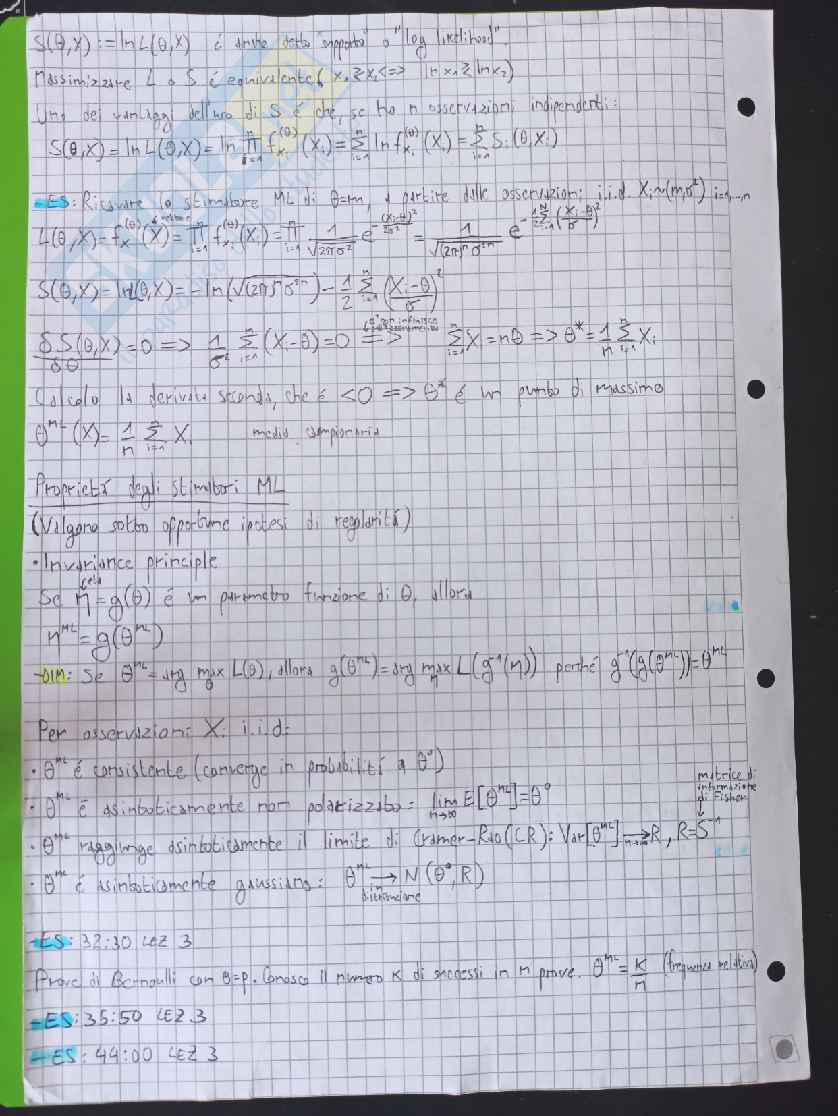 S(θ,X) := ln L(θ,X) é anche detto "supporto" o "log likelihood".
Massimizzare L o S é equivalente (x₁≥x₂ <=> ln x₁ ≥ ln x₂)
Uno dei vantaggi dell'uso di S é che, se ho n osservazioni indipendenti:
S(θ,X) = ln L(θ,X) = ln ∏ᵢ₌₁ⁿ f_xᵢ^(θ)(Xᵢ) = Σᵢ₌₁ⁿ ln f_xᵢ^(θ)(Xᵢ) = Σᵢ₌₁ⁿ Sᵢ(θ,Xᵢ)
-ES: Ricavare lo stimatore ML di θ=m, a partire dalle osservazioni i.i.d. Xᵢ~(m,σ²) i=1,...,n
L(θ,X) = f_x^(θ)(X) = ∏ᵢ₌₁ⁿ f_xᵢ^(θ)(Xᵢ) = ∏ᵢ₌₁ⁿ 1/√(2πσ²) e^(-(Xᵢ-θ)²/2σ²) = 1/√((2π)ⁿσ²ⁿ) e^(-½ Σᵢ₌₁ⁿ ((Xᵢ-θ)/σ)²)
S(θ,X) = ln L(θ,X) = -ln(√((2π)ⁿσ²ⁿ)) - ½ Σᵢ₌₁ⁿ ((Xᵢ-θ)/σ)²
δS(θ,X)/δθ = 0 => 1/σ² Σᵢ₌₁ⁿ (Xᵢ-θ) = 0 => Σᵢ₌₁ⁿ Xᵢ = nθ => θ* = 1/n Σᵢ₌₁ⁿ Xᵢ
Calcolo la derivata seconda, che é <0 => θ* é un punto di massimo
θ^ML(X) = 1/n Σᵢ₌₁ⁿ Xᵢ media campionaria
Proprietá degli stimatori ML
(Valgono sotto opportune ipotesi di regolaritá)
• Invariance principle
Se η = g(θ) é un parametro funzione di θ, allora
η^ML = g(θ^ML)
-DIM: Se θ^ML = arg max_θ L(θ), allora g(θ^ML) = arg max_η L(g⁻¹(η)) perché g⁻¹(g(θ^ML)) = θ^ML
Per osservazioni Xᵢ i.i.d.:
• θ^ML é consistente (converge in probabilitá a θ°)
• θ^ML é asintoticamente non polarizzato: lim_n→∞ E[θ^ML] = θ°
matrice di informazione di Fisher
• θ^ML raggiunge asintoticamente il limite di Cramer-Rao (CR): Var[θ^ML] →_n→∞ R, R = S⁻¹
• θ^ML é asintoticamente gaussiano: θ^ML → N(θ°,R)
in distribuzione
-ES: 32:30 LEZ 3
Prove di Bernoulli con θ=p. Conosco il numero K di successi in n prove. θ^ML = K/n (frequenza relativa)
-ES: 35:50 LEZ.3
-ES: 44:00 LEZ 3